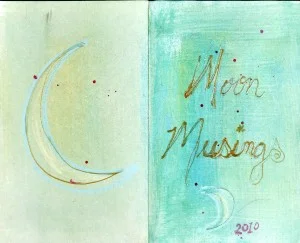 Moon
Musings
2010